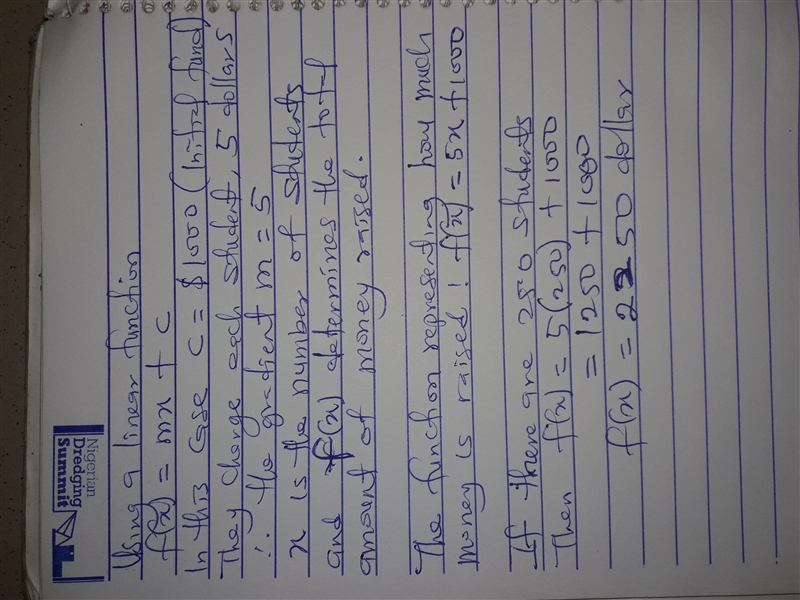 Nigerian
Dredging
Summit
Using a linear function
f(x) = mx + c
In this case c = $1000 (Initial fund)
They charge each student, 5 dollars
∴ the gradient m = 5
x is the number of students
and f(x) determines the total
amount of money raised.
The function representing how much
money is raised! f(x) = 5x + 1000
If there are 250 students
Then f(x) = 5(250) + 1000
= 1250 + 1000
f(x) = 2250 dollar